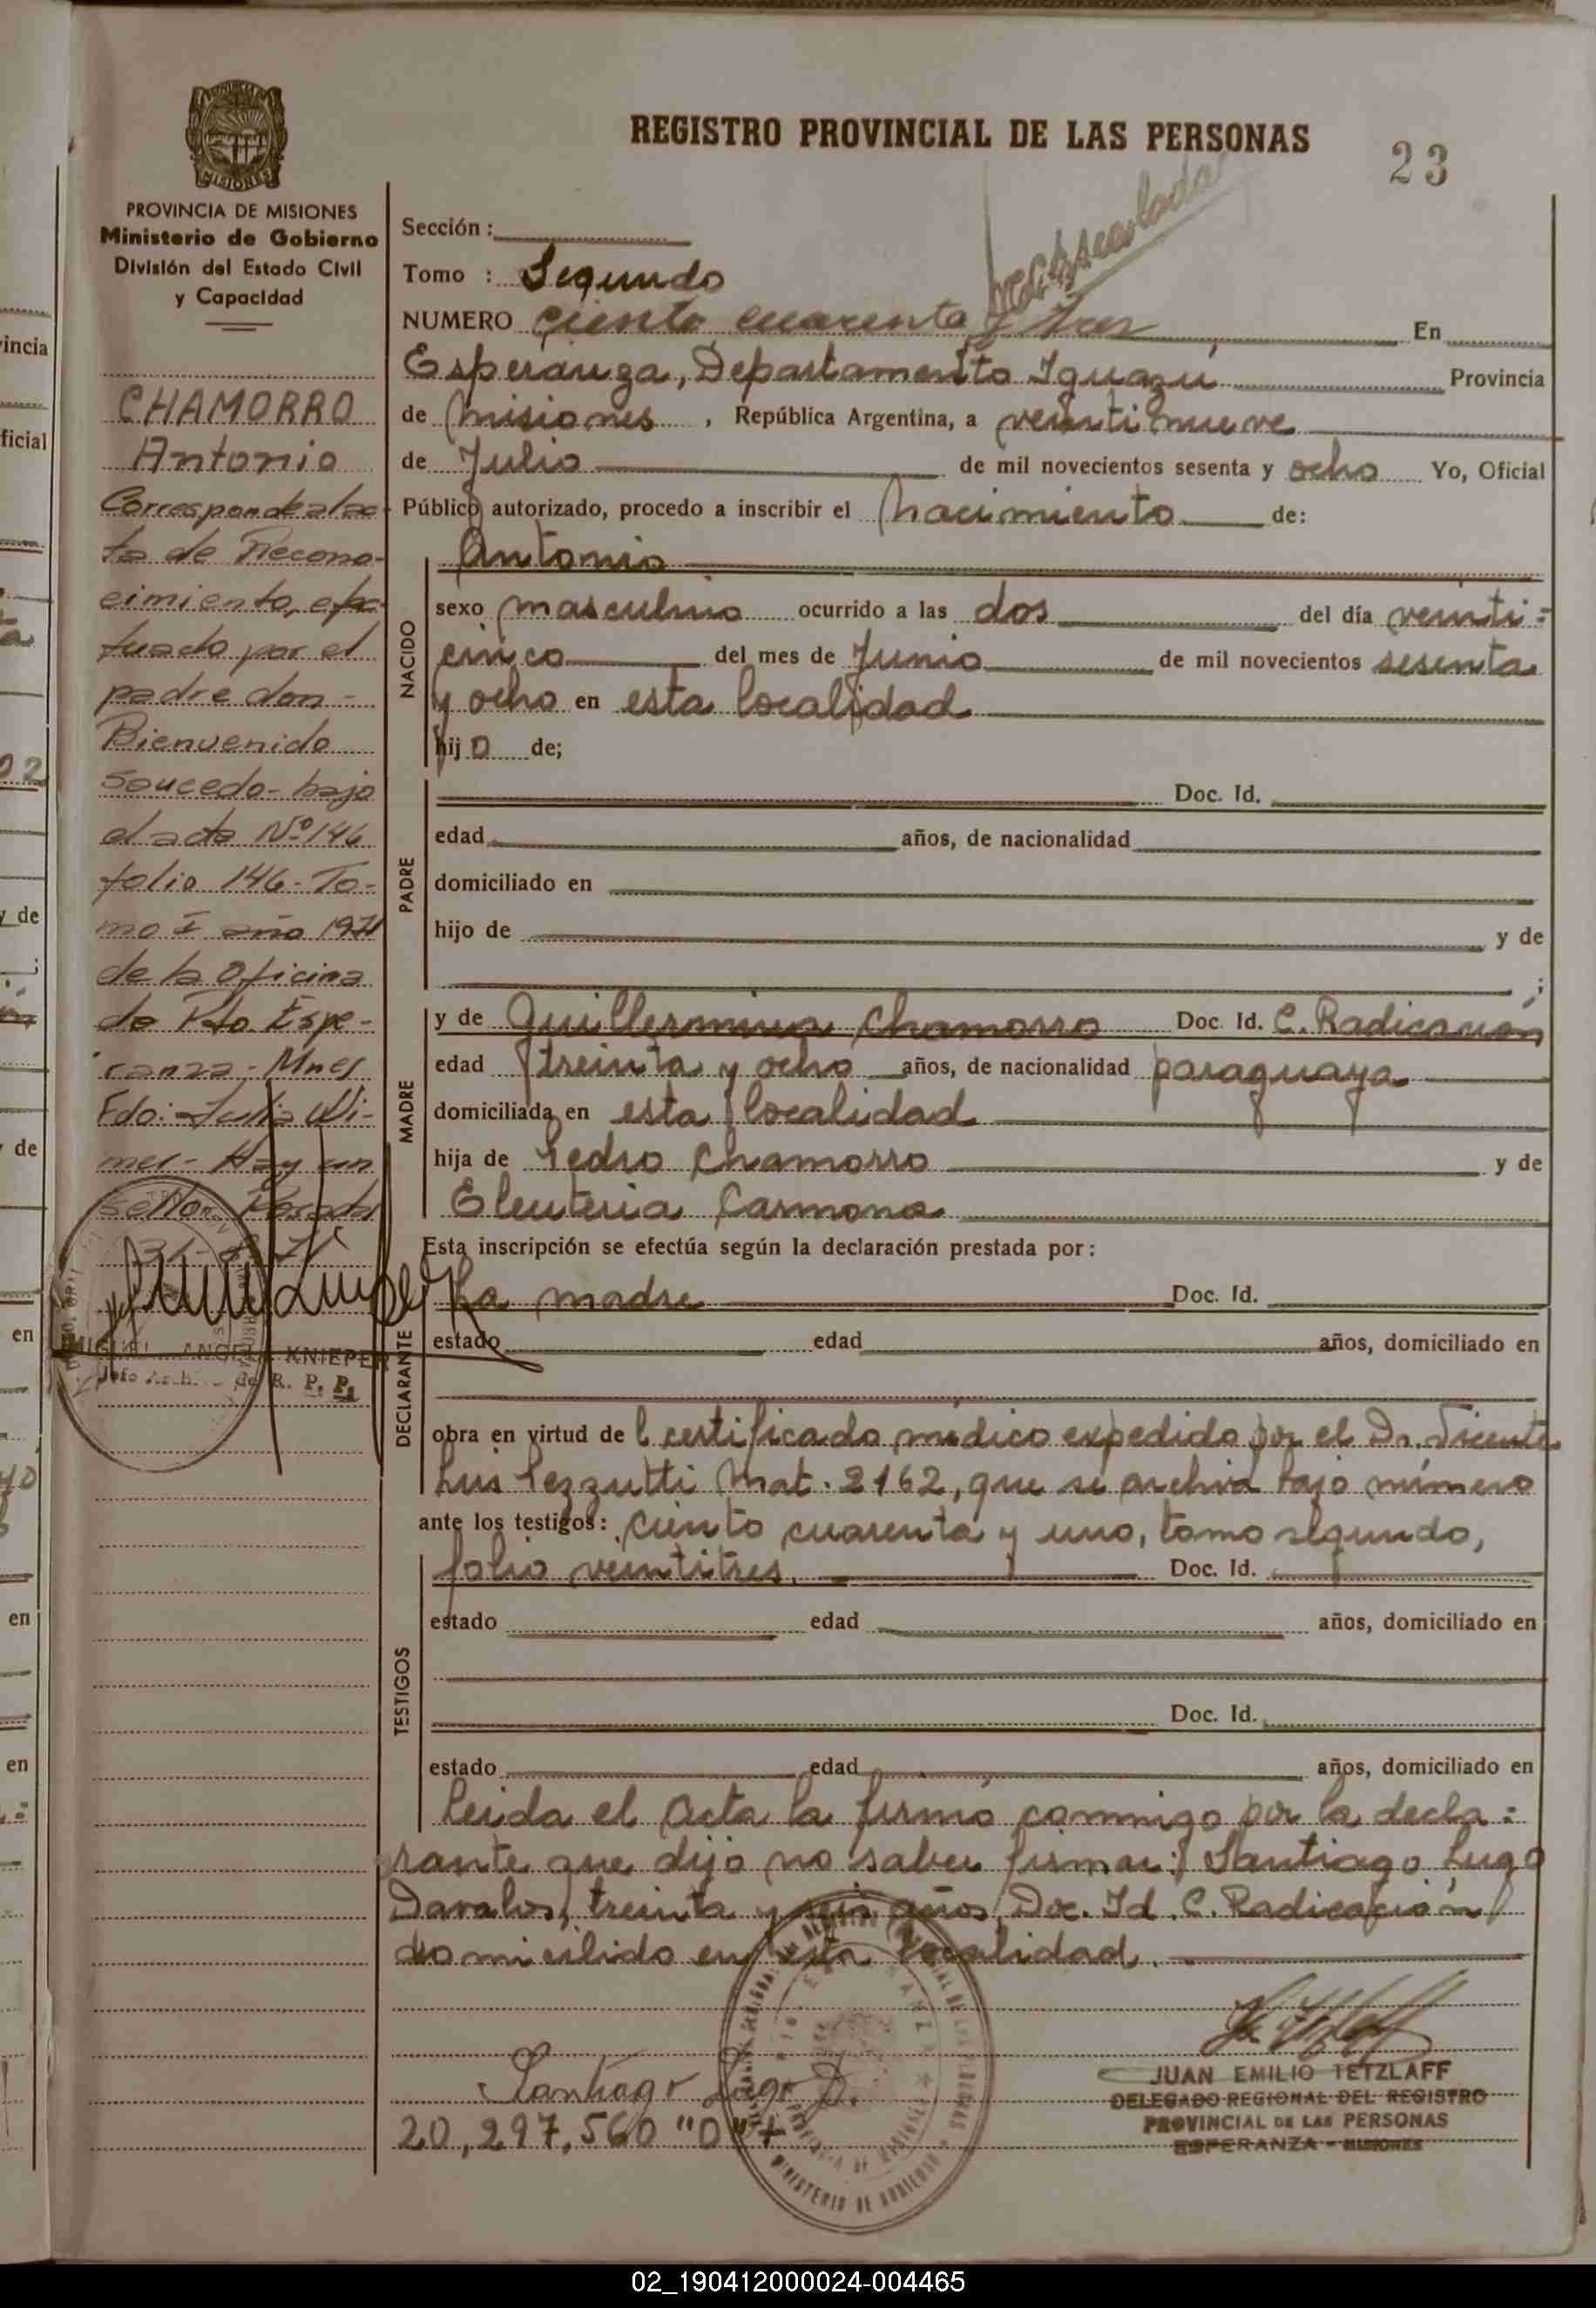 REGISTRO PROVINCIAL DE LAS PERSONAS
23
MISIONES
PROVINCIA DE MISIONES
Ministerio de Gobierno
División del Estado Civil
y Capacidad
CHAMORRO
Antonio
Corresponde al ac-
ta de Recono-
cimiento, efec-
tuado por el
padre don -
Bienvenido
Saucedo - bajo
el acta Nº 146
folio 146 - To-
mo I año 1971
de la Oficina
de Pto Espe-
ranza - Mnes
Fdo: Julia Wi-
mer - Hay un
sello. Posadas
KNIEPER
R. P. P.
Sección :
Tomo : Segundo
NUMERO Ciento cuarenta y tres En
Esperanza, Departamento Iguazú Provincia
de Misiones , República Argentina, a veintinueve
de Julio de mil novecientos sesenta y ocho Yo, Oficial
Público autorizado, procedo a inscribir el nacimiento de:
NACIDO
Antonio
sexo masculino ocurrido a las dos del día veinti=
cinco del mes de Junio de mil novecientos sesenta
y ocho en esta localidad
hij o de;
PADRE
Doc. Id.
edad años, de nacionalidad
domiciliado en
hijo de y de
;
MADRE
y de Guillermina Chamorro Doc. Id. C. Radicación
edad treinta y ocho años, de nacionalidad paraguaya
domiciliada en esta localidad
hija de Pedro Chamorro y de
Eleuteria Carmona
Esta inscripción se efectúa según la declaración prestada por :
DECLARANTE
La madre Doc. Id.
estado edad años, domiciliado en
obra en virtud de l certificado médico expedido por el Dr. Vicente
Luis Pezzutti Mat. 2162, que se archiva bajo número
ante los testigos: ciento cuarenta y uno, tomo segundo,
folio veintitres. Doc. Id.
TESTIGOS
estado edad años, domiciliado en
Doc. Id.
estado edad años, domiciliado en
Leida el Acta la firmó conmigo por la decla=
rante que dijo no saber firmar: Santiago Lugo
Davalos, treinta y seis años, Doc. Id. C. Radicación
domicilido en esta localidad.
Santiago Lugo D.
20,297,560 "D"
JUAN EMILIO TETZLAFF
DELEGADO REGIONAL DEL REGISTRO
PROVINCIAL DE LAS PERSONAS
ESPERANZA - MISIONES
MINISTERIO DE GOBIERNO
02_190412000024-004465